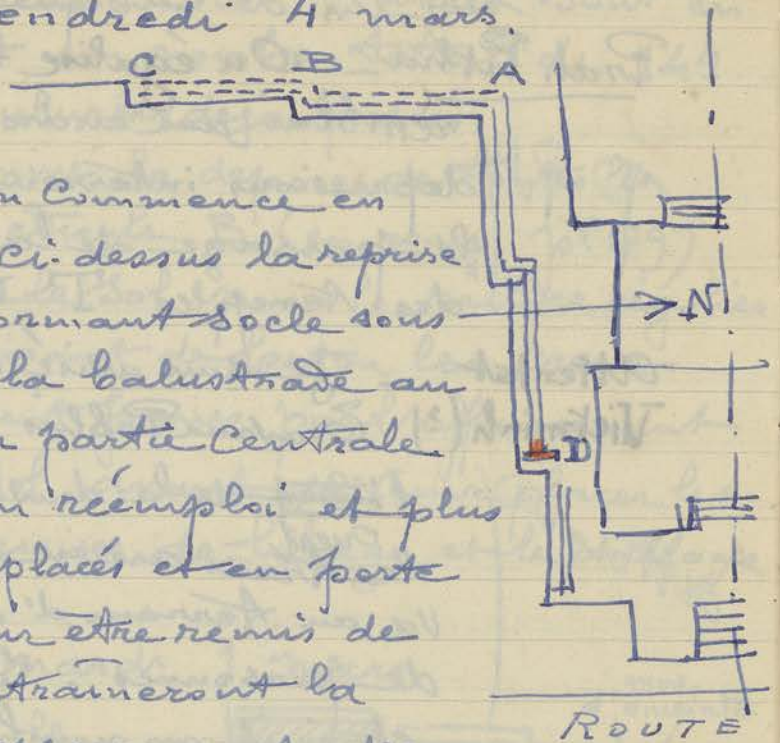 endredi 4 mars.
C B A
n commence en
ci-dessus la reprise
ormant socle sous
N
la balustrade au
partie centrale.
D
n réemploi et plus
placés et en porte
ur être remis de
traîneront la
ROUTE